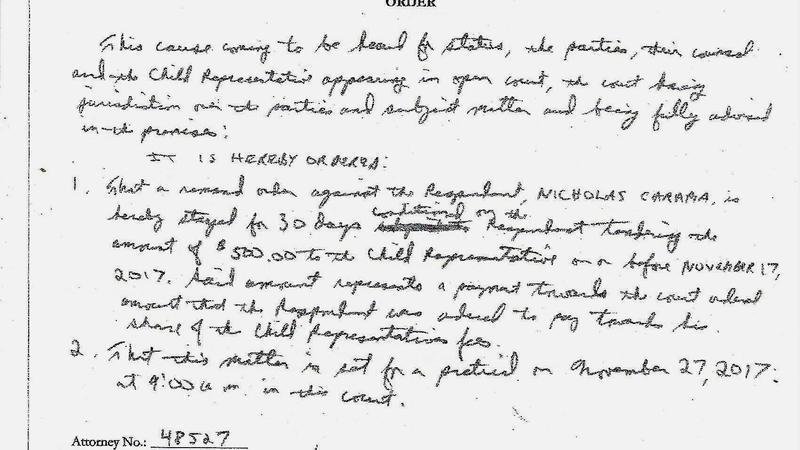 ORDER
This cause coming to be heard for status, the parties, their counsel
and the Child Representative appearing in open court, the court having
jurisdiction over the parties and subject matter and being fully advised
in the premises:
IT IS HEREBY ORDERED:
1. That a remand order against the Respondent, NICHOLAS CARAMA, is
hereby stayed for 30 days conditional on the Respondent tendering the
amount of $500.00 to the Child Representative on or before NOVEMBER 17,
2017. Said amount represents a payment towards the court ordered
amount that the Respondent was ordered to pay towards his
share of the Child Representatives fees.
2. That this matter is set for a pretrial on November 27, 2017
at 9:00 a.m. in this court.
Attorney No.: 48527